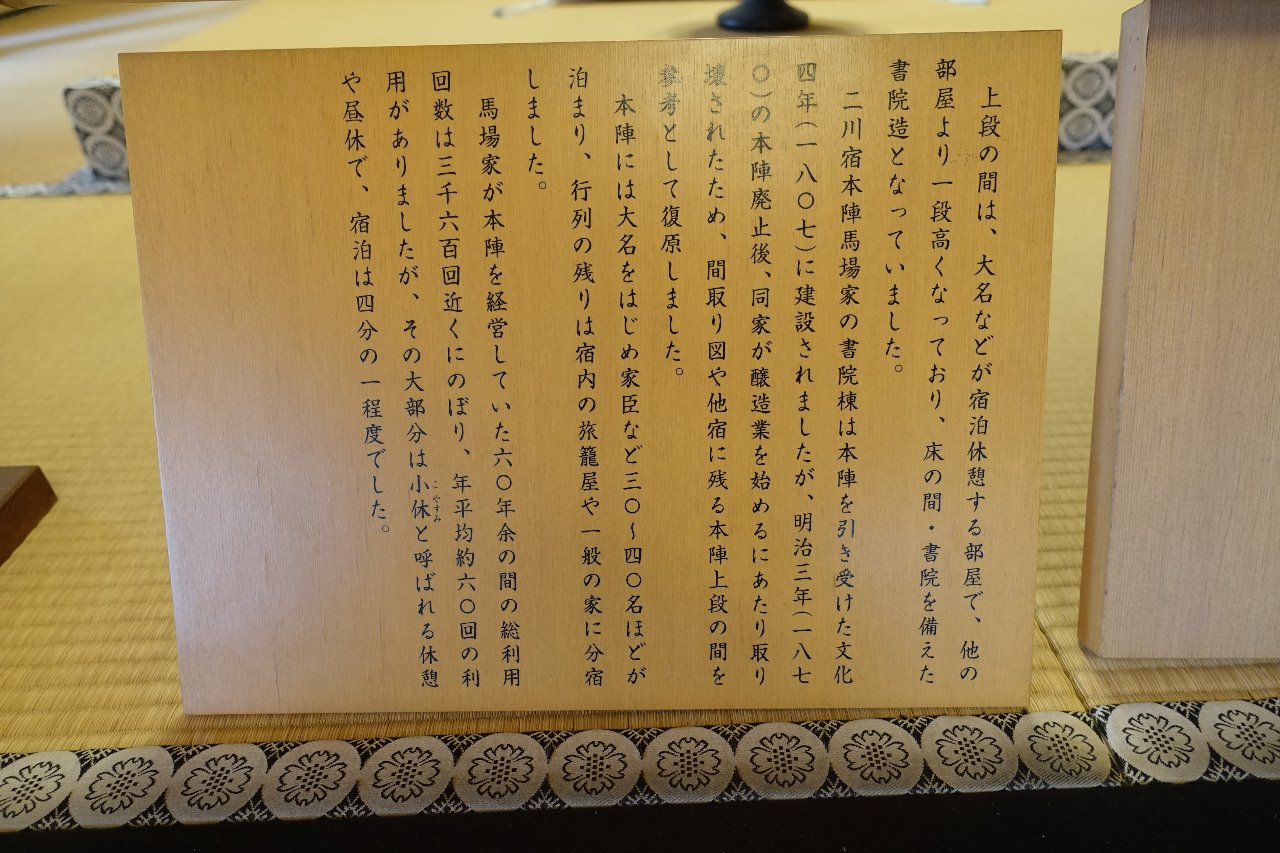 上段の間は、大名などが宿泊休憩する部屋で、他の
部屋より一段高くなっており、床の間・書院を備えた
書院造となっていました。
二川宿本陣馬場家の書院棟は本陣を引き受けた文化
四年(一八〇七)に建設されましたが、明治三年(一八七
〇)の本陣廃止後、同家が醸造業を始めるにあたり取り
壊されたため、間取り図や他宿に残る本陣上段の間を
参考として復原しました。
本陣には大名をはじめ家臣など三〇～四〇名ほどが
泊まり、行列の残りは宿内の旅籠屋や一般の家に分宿
しました。
馬場家が本陣を経営していた六〇年余の間の総利用
回数は三千六百回近くにのぼり、年平均約六〇回の利
用がありましたが、その大部分は小休と呼ばれる休憩
こやすみ
や昼休で、宿泊は四分の一程度でした。